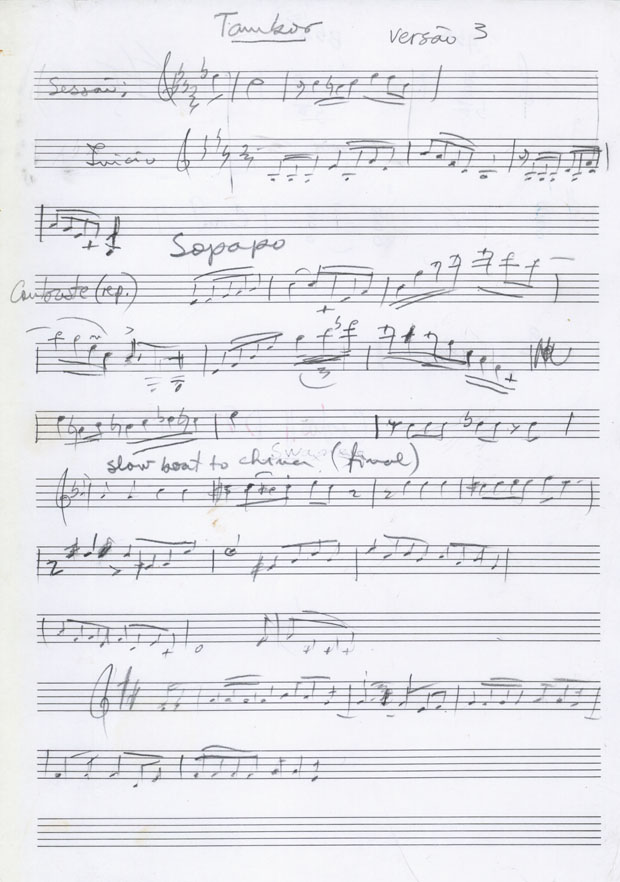 Tambor
versão 3
Sessão:
Início
Sopapo
Contraste (rep.)
3
slow boat to china (final)
2 2
2